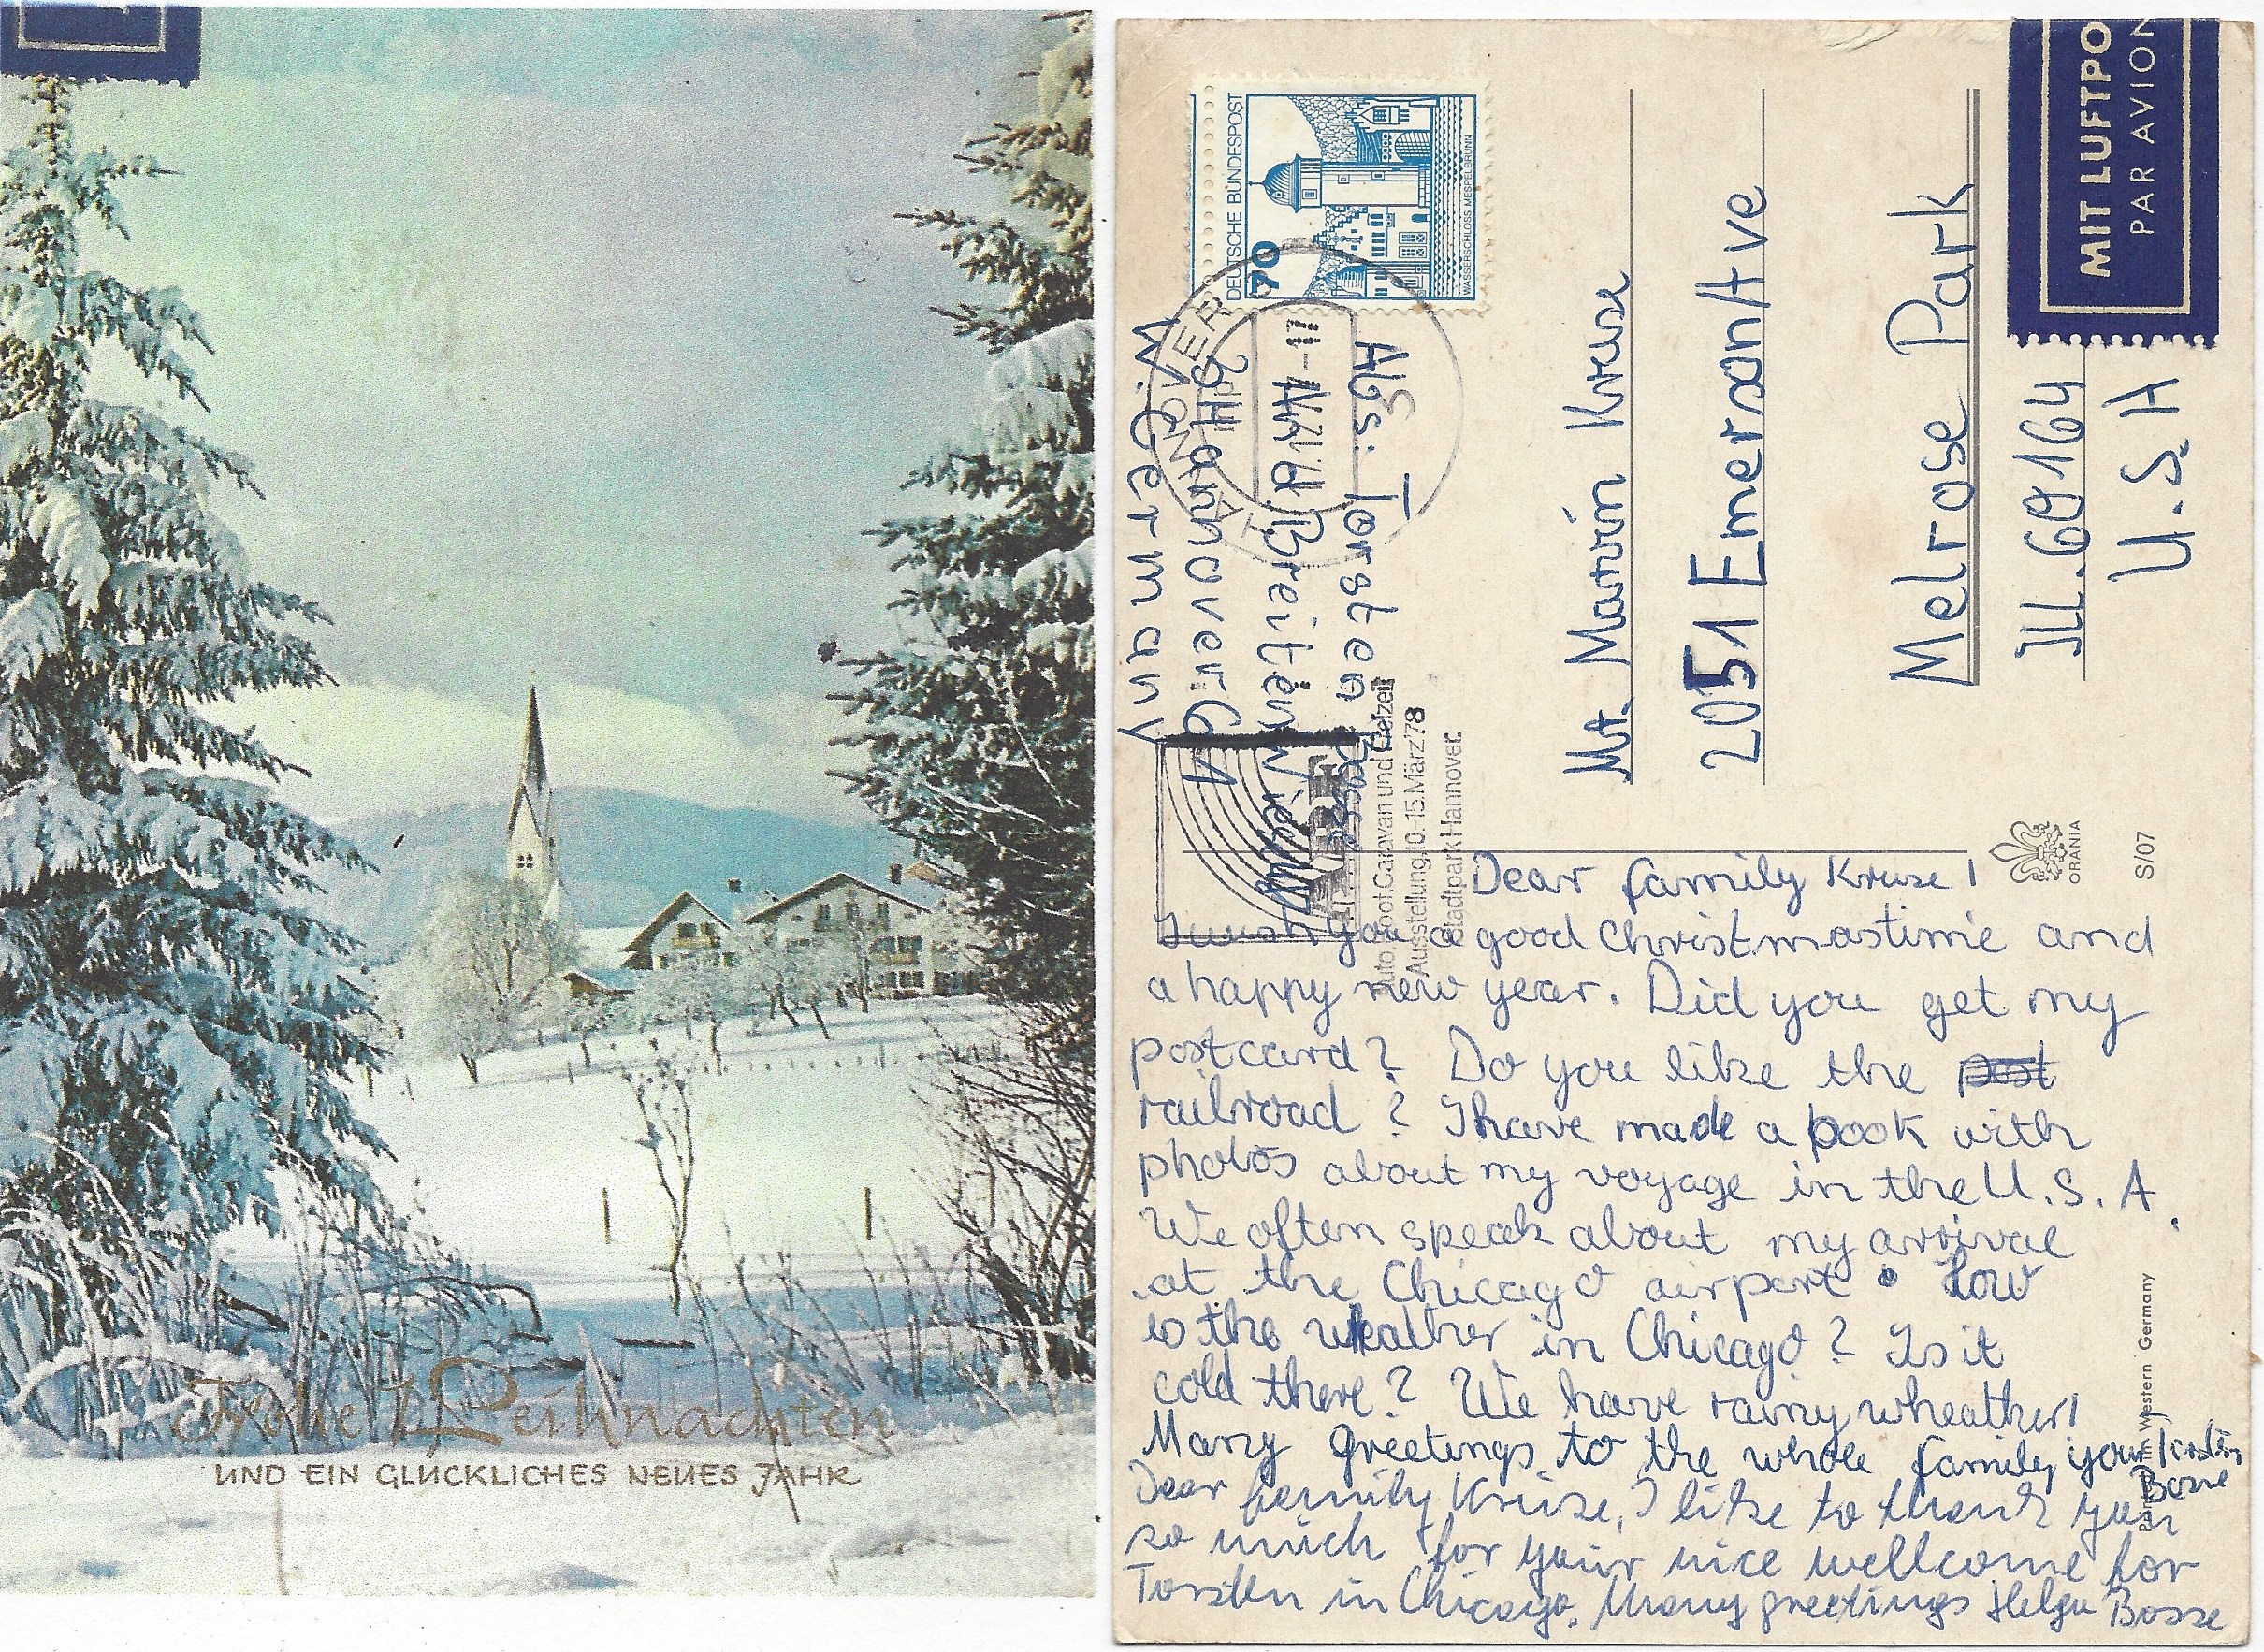 Frohe Weihnachten
UND EIN GLÜCKLICHES NEUES JAHR
DEUTSCHE BUNDESPOST
70
WASSERSCHLOSS MESPELBRUNN
MIT LUFTPO
PAR AVION
HANNOVER
-17
3
Abs: Torsten Bosse
Breitenwieg
3 Hannover 61
W. Germany
Auto, Boot, Caravan und Freizeit
Ausstellung 10.-15. März '78
Stadtpark Hannover.
Mt. Marvin Kruse
2051 Emerson Ave
Melrose Park
ILL. 60164
U.S.A
ORANIA
S/07
Dear family Kruse!
I wish you a good Christmastime and
a happy new year. Did you get my
postcard? Do you like the post
railroad? I have made a book with
photos about my voyage in the U.S.A.
We often speak about my arrival
at the Chicago airport. How
is the wheather in Chicago? Is it
cold there? We have rainy wheather!
Many greetings to the whole family your Torsten
Bosse
Dear family Kruse, I like to thank you
so much for your nice wellcome for
Torsten in Chicago. Many greetings Helga Bosse
Printed in Western Germany